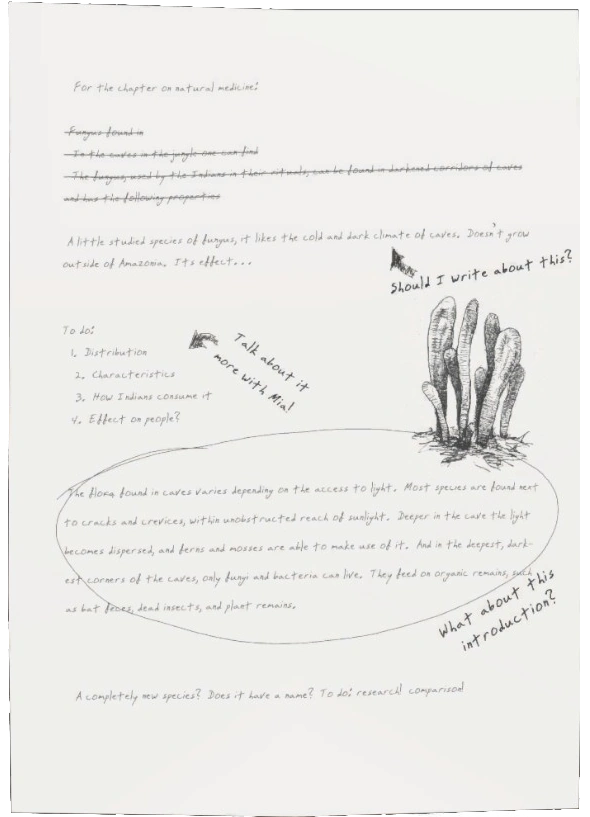 For the chapter on natural medicine:
Fungus found in
In the caves in the jungle one can find
The fungus, used by the Indians in their rituals, can be found in darkened corridors of caves
and has the following properties
A little studied species of fungus, it likes the cold and dark climate of caves. Doesn't grow
outside of Amazonia. Its effect...
Should I write about this?
To do:
1. Distribution
2. Characteristics
3. How Indians consume it
4. Effect on people?
Talk about it
more with Mia!
The flora found in caves varies depending on the access to light. Most species are found next
to cracks and crevices, within unobstructed reach of sunlight. Deeper in the cave the light
becomes dispersed, and ferns and mosses are able to make use of it. And in the deepest, dark-
est corners of the caves, only fungi and bacteria can live. They feed on organic remains, such
as bat feces, dead insects, and plant remains.
What about this
introduction?
A completely new species? Does it have a name? To do: research! comparison!